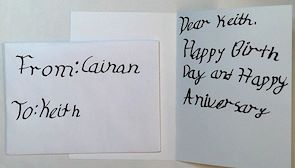 From: Cainan
To: Keith
Dear Keith,
Happy Birth
Day and Happy
Aniversary